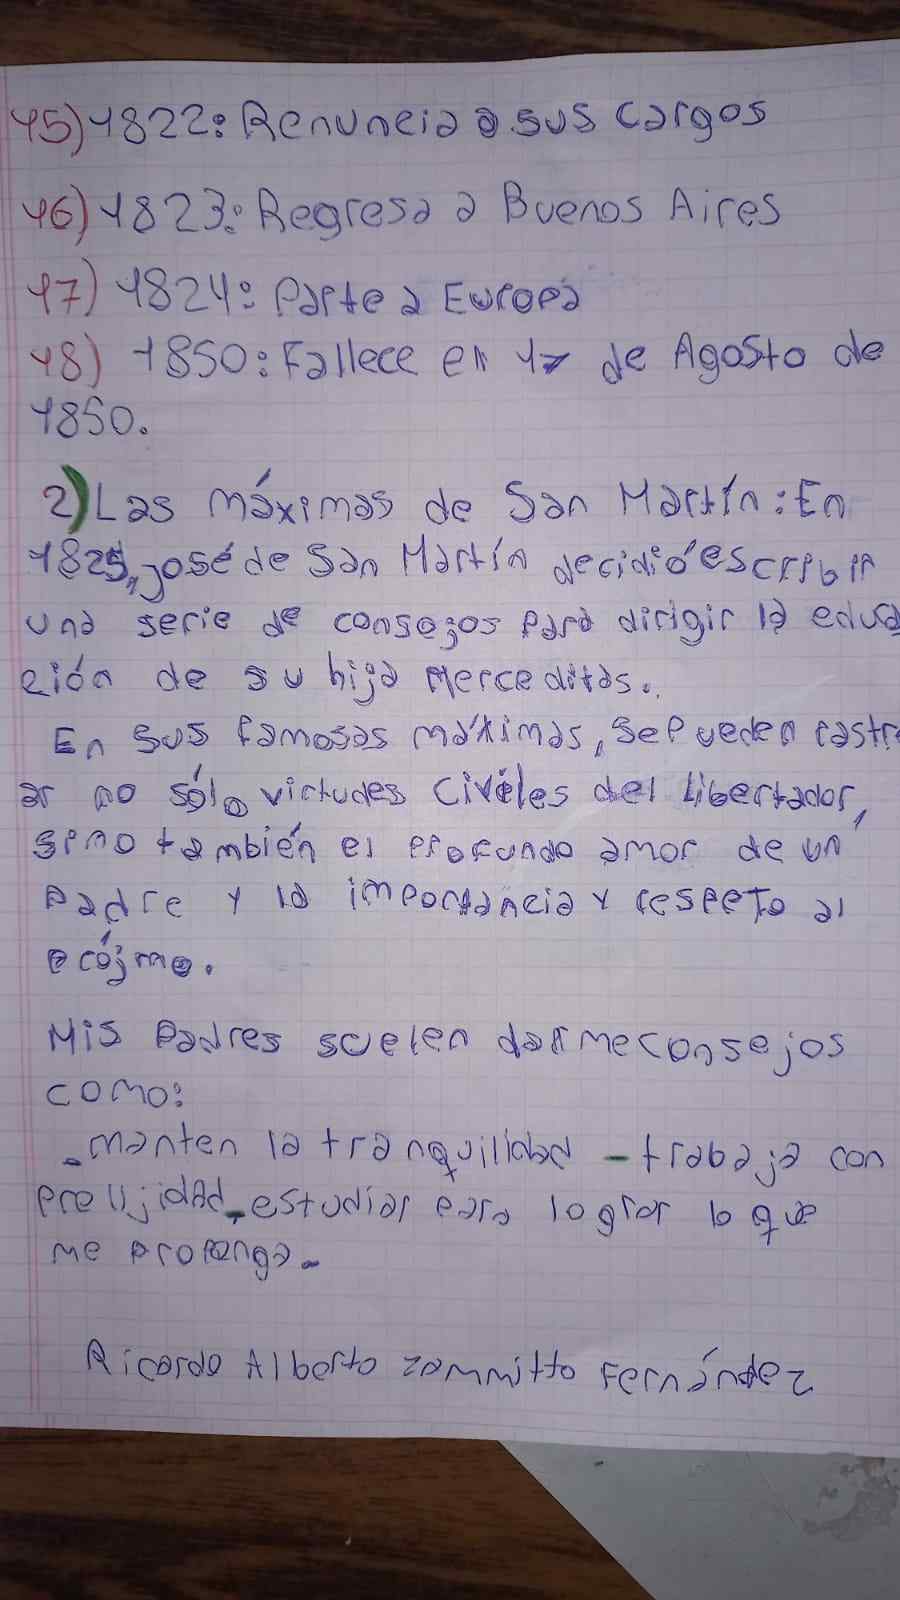 15) 1822: Renuncia a sus cargos
16) 1823: Regresa a Buenos Aires
17) 1824: Parte a Europa
18) 1850: Fallece en 17 de Agosto de
1850.
2) Las máximas de San Martín: En
1825, josé de San Martín decidió escribir
una serie de consejos para dirigir la educa
ción de su hija Merceditas.
En sus famosas máximas, se pueden rastre
ar no sólo virtudes civiles del libertador,
sino también el profundo amor de un
padre y la importancia y respeto al
prójmo.
Mis padres suelen darme consejos
como:
-manten la tranquilidad -trabaja con
prelijidad -estudiar para lograr lo que
me proponga.
Ricardo Alberto zammitto Fernández